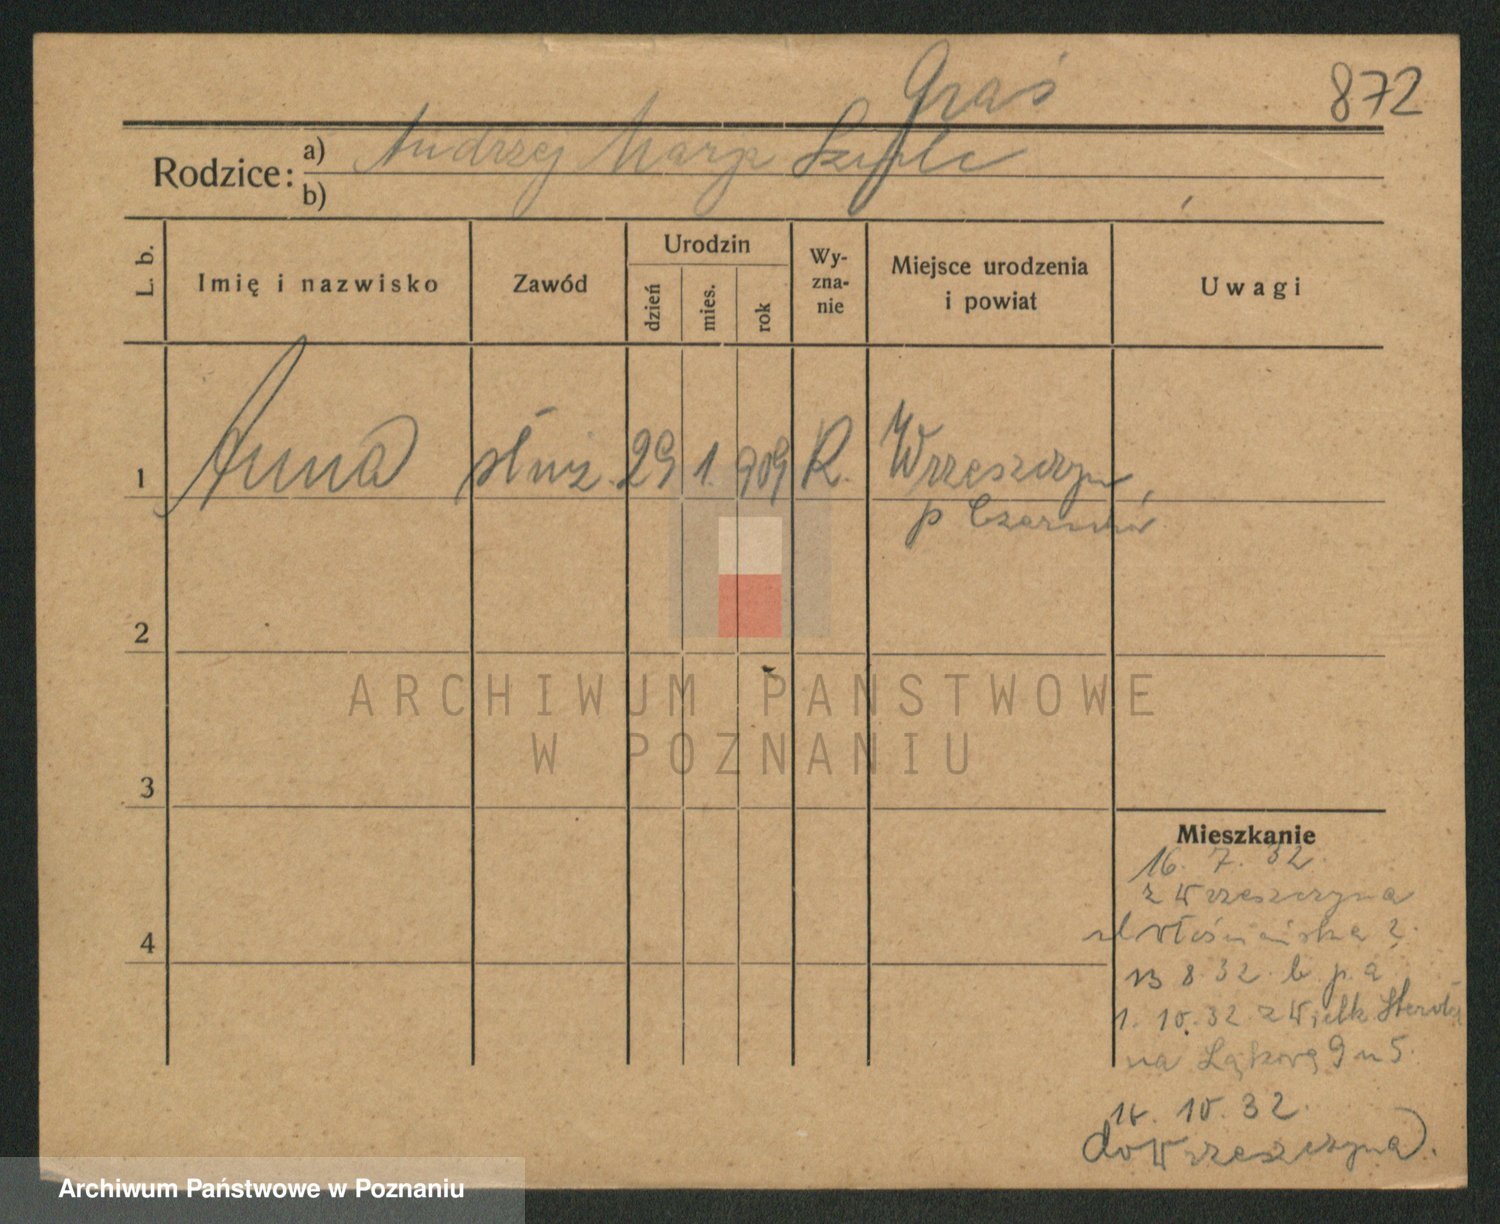 Graś
872
Rodzice: a) Andrzej Marja
b)
L. b.
Imię i nazwisko
Zawód
Urodzin
dzień
mies.
rok
Wy-
zna-
nie
Miejsce urodzenia
i powiat
Uwagi
1 Anna służ. 29 1. 909 R. Wrzeszczyn,
p Czarnków
2
3
4
ARCHIWUM PAŃSTWOWE
W POZNANIU
Mieszkanie
16. 7. 32
z Wrzeszczyna
ul Włościańska 2.
13 8 32. b. p. a
1. 10. 32 z Wielk
na Łąkową 9 m 5.
10. 32.
do Wrzeszczyna.
Archiwum Państwowe w Poznaniu